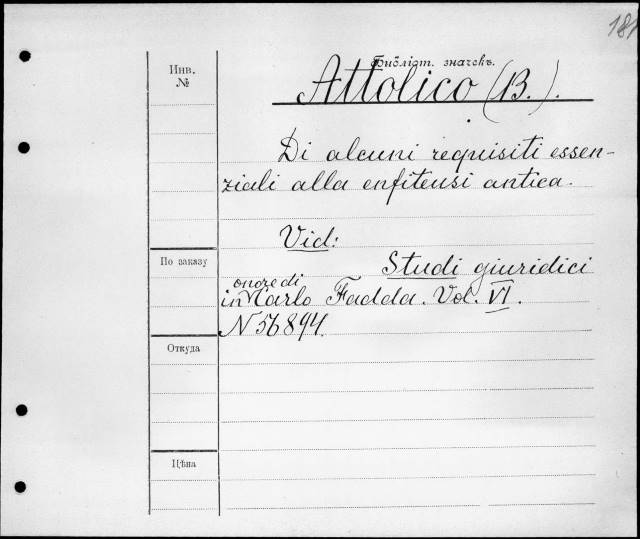 181
Библіот. значекъ.
Attolico (B.).
Инв.
№
Di alcuni requisiti essen-
ziali alla enfiteusi antica.
Vid:
По заказу
Studi giuridici
onore di
in Carlo Fadda. Vol. VI.
N 56894.
Откуда
Цѣна